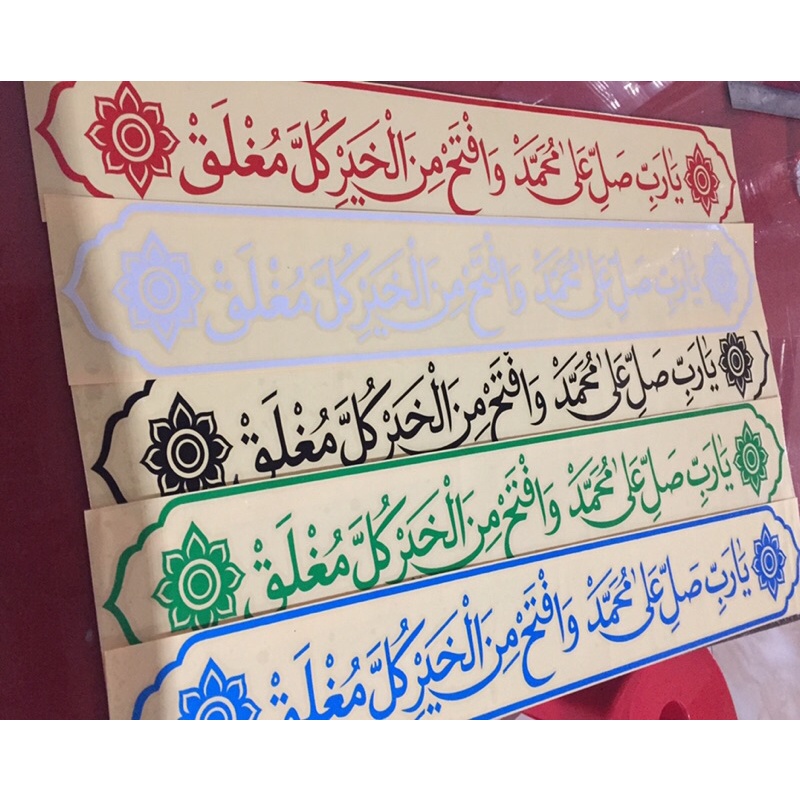 يَارَبِّ صَلِّ عَلىٰ مُحَمَّدْ وَافْتَحْ مِنَ الْخَيْرِ كُلَّ مُغْلَقْ
يَارَبِّ صَلِّ عَلىٰ مُحَمَّدْ وَافْتَحْ مِنَ الْخَيْرِ كُلَّ مُغْلَقْ
يَارَبِّ صَلِّ عَلىٰ مُحَمَّدْ وَافْتَحْ مِنَ الْخَيْرِ كُلَّ مُغْلَقْ
يَارَبِّ صَلِّ عَلىٰ مُحَمَّدْ وَافْتَحْ مِنَ الْخَيْرِ كُلَّ مُغْلَقْ
يَارَبِّ صَلِّ عَلىٰ مُحَمَّدْ وَافْتَحْ مِنَ الْخَيْرِ كُلَّ مُغْلَقْ